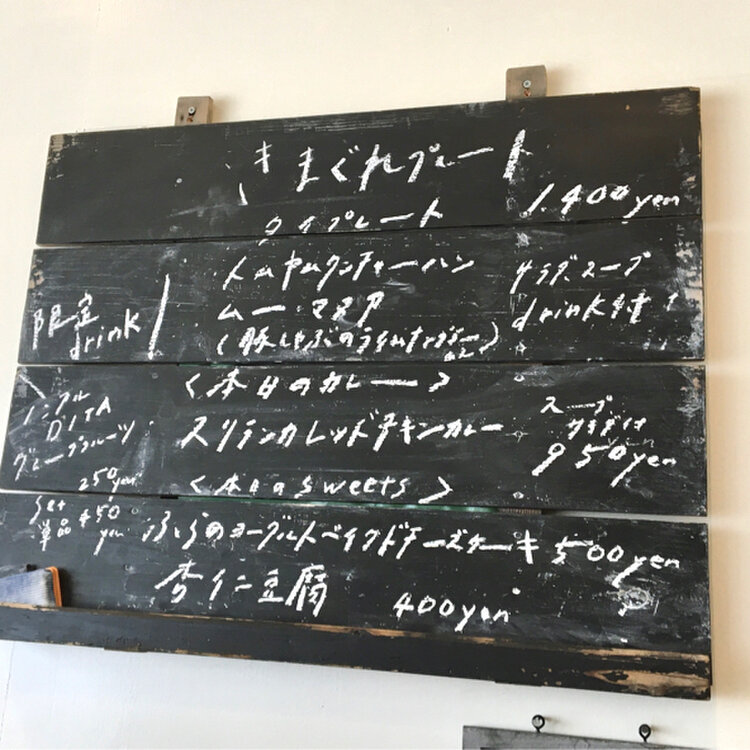 きまぐれプレート
1.400yen
タイプレート
トムヤムクンチャーハン
サラダ、スープ
drink付
ムー・マナオ
(豚しゃぶのライムナンプラー
限定
drink
<本日のカレー>
スリランカレッドチキンカレー
スープ
サラダ付
950yen
ノンアル
DITA
グレープフルーツ
250yen
<本日のsweets>
set
単品 450
yen
のヨーグルトベイクドチーズケーキ 500yen
杏仁豆腐 400yen